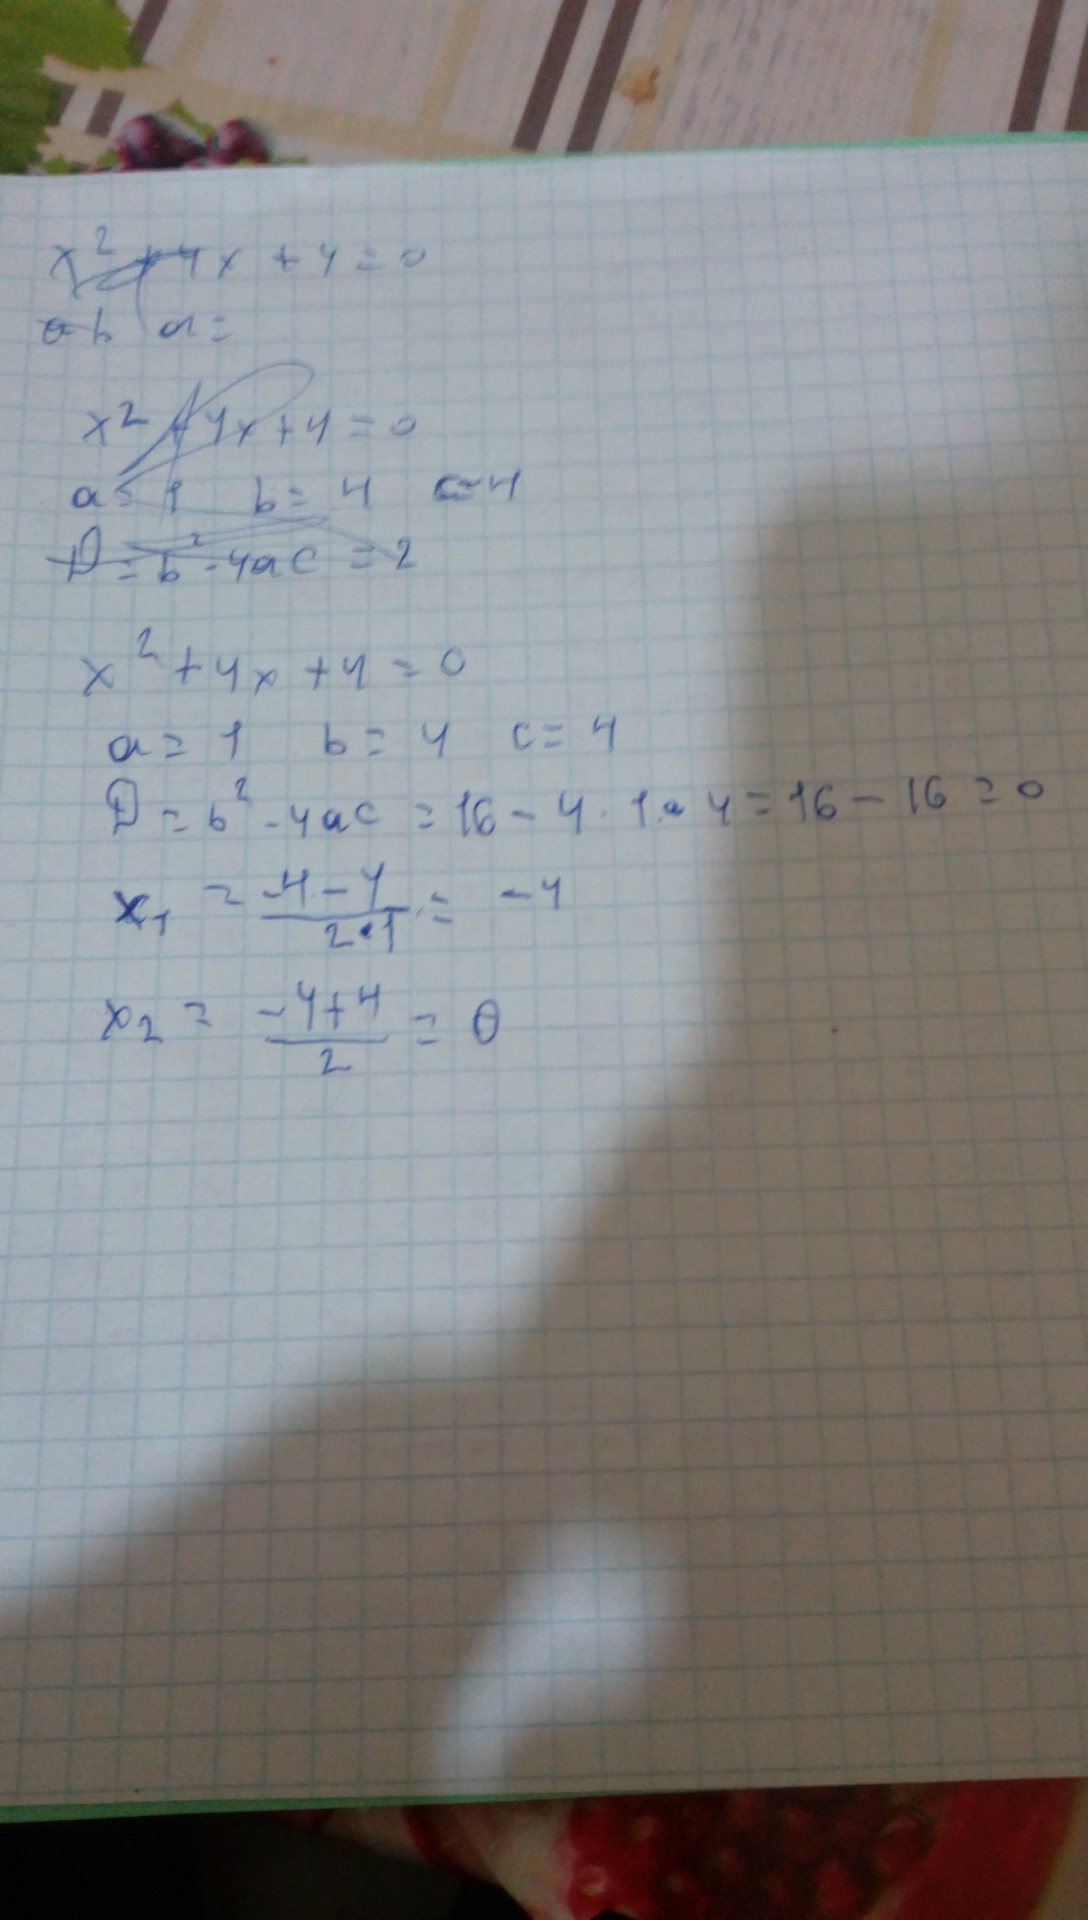 x² + 4x + 4 = 0
a b a =
x² + 4x + 4 = 0
a = 1 b = 4 c = 4
D = b² - 4ac = 2
x² + 4x + 4 = 0
a = 1 b = 4 c = 4
D = b² - 4ac = 16 - 4 · 1 · 4 = 16 - 16 = 0
x₁ = (-4 - 4)/(2·1) = -4
x₂ = (-4 + 4)/2 = 0